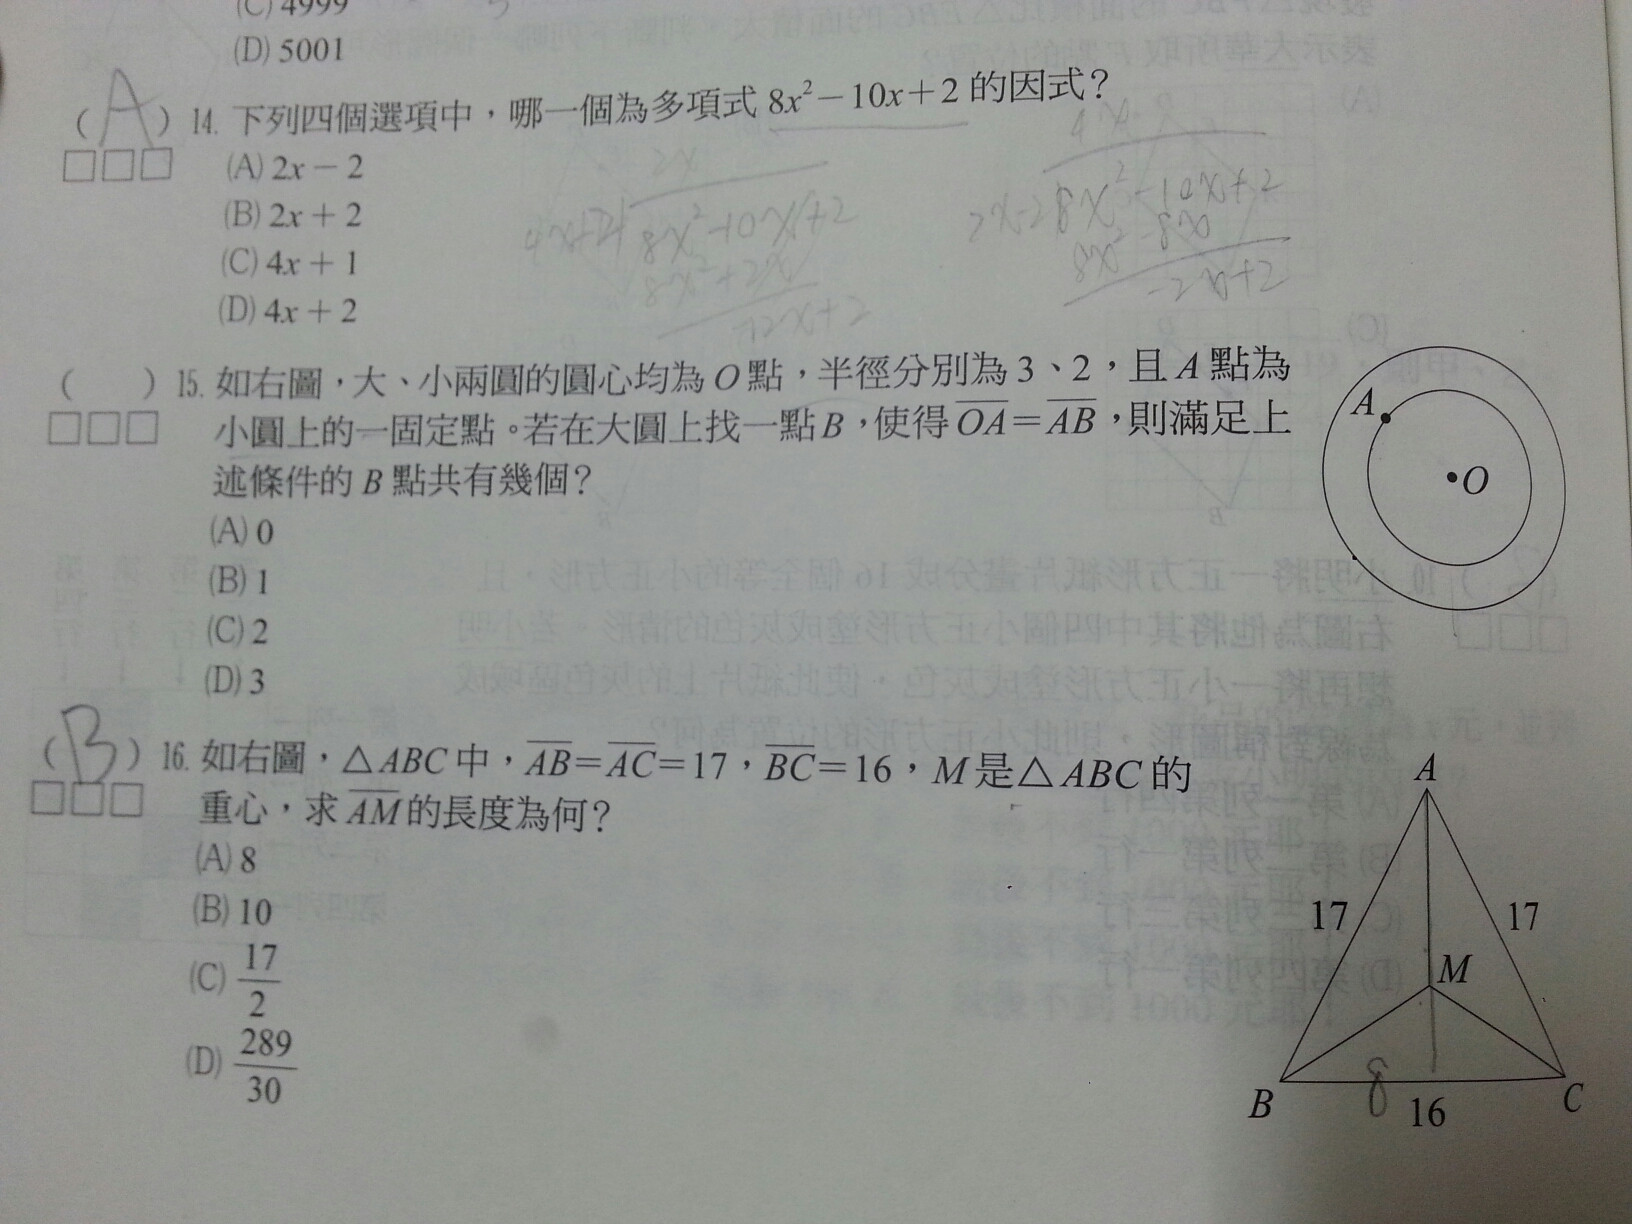 (C) 4999
(D) 5001
( A ) 14. 下列四個選項中，哪一個為多項式 8x² − 10x + 2 的因式？
(A) 2x − 2
(B) 2x + 2
(C) 4x + 1
(D) 4x + 2
2x
8x² − 10x + 2
8x² + 2x
−12x + 2
4x
2x-2 8x² − 10x + 2
8x² − 8x
−2x + 2
( ) 15. 如右圖，大、小兩圓的圓心均為 O 點，半徑分別為 3、2，且 A 點為
小圓上的一固定點。若在大圓上找一點 B，使得 OA = AB，則滿足上
述條件的 B 點共有幾個？
(A) 0
(B) 1
(C) 2
(D) 3
A
O
( B ) 16. 如右圖，△ABC 中，AB = AC = 17，BC = 16，M 是△ABC 的
重心，求 AM 的長度為何？
(A) 8
(B) 10
(C) 17/2
(D) 289/30
A
17
17
M
8
B
16
C